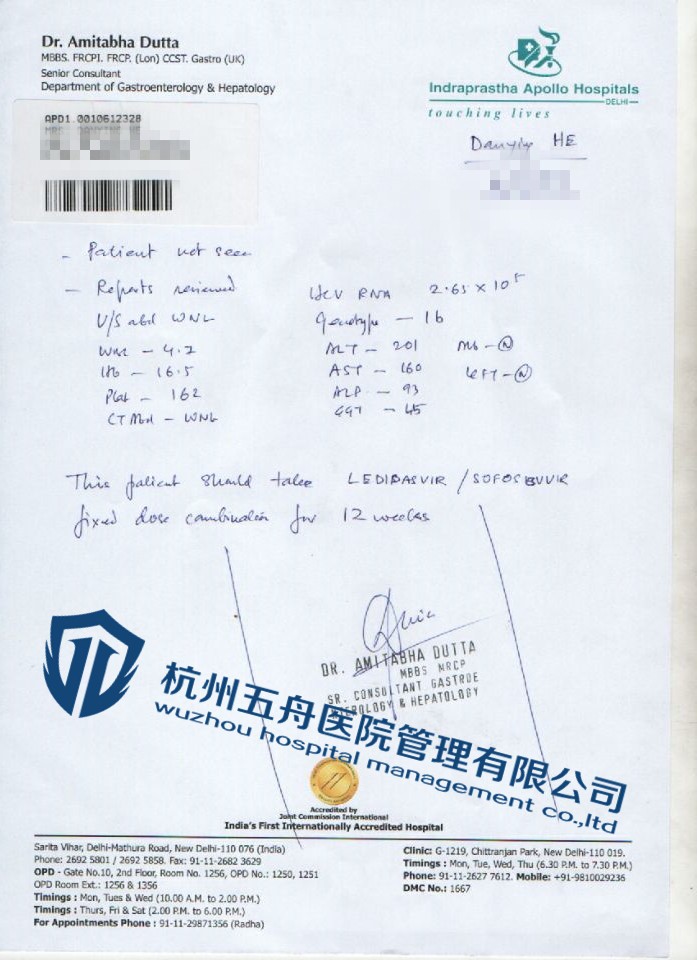 Dr. Amitabha Dutta
MBBS. FRCPI. FRCP. (Lon) CCST. Gastro (UK)
Senior Consultant
Department of Gastroenterology & Hepatology
Indraprastha Apollo Hospitals
DELHI
touching lives
APD1.0010612328
HE
- Patient not seen
- Reports reviewed
U/S abd WNL
- 4.7
Hb - 16.5
Plat - 162
CT Abd - WNL
HCV RNA 2.65 x 10⁵
Genotype - 1b
ALT - 201
AST - 160
ALP - 93
GGT - 45
This patient should take LEDIPASVIR / SOFOSBUVIR
fixed dose combination for 12 weeks
DR. AMITABHA DUTTA
MBBS MRCP
SR. CONSULTANT GASTROE
& HEPATOLOGY
杭州五舟医院管理有限公司
wuzhou hospital management co.,ltd
Accredited by
Joint Commission International
India's First Internationally Accredited Hospital
Sarita Vihar, Delhi-Mathura Road, New Delhi-110 076 (India)
Phone: 2692 5801 / 2692 5858. Fax: 91-11-2682 3629
OPD - Gate No.10, 2nd Floor, Room No. 1256, OPD No.: 1250, 1251
OPD Room Ext.: 1256 & 1356
Timings : Mon, Tues & Wed (10.00 A.M. to 2.00 P.M.)
Timings : Thurs, Fri & Sat (2.00 P.M. to 6.00 P.M.)
For Appointments Phone : 91-11-29871356 (Radha)
Clinic: G-1219, Chittranjan Park, New Delhi-110 019.
Timings : Mon, Tue, Wed, Thu (6.30 P.M. to 7.30 P.M.)
Phone: 91-11-2627 7612. Mobile: +91-9810029236
DMC No.: 1667